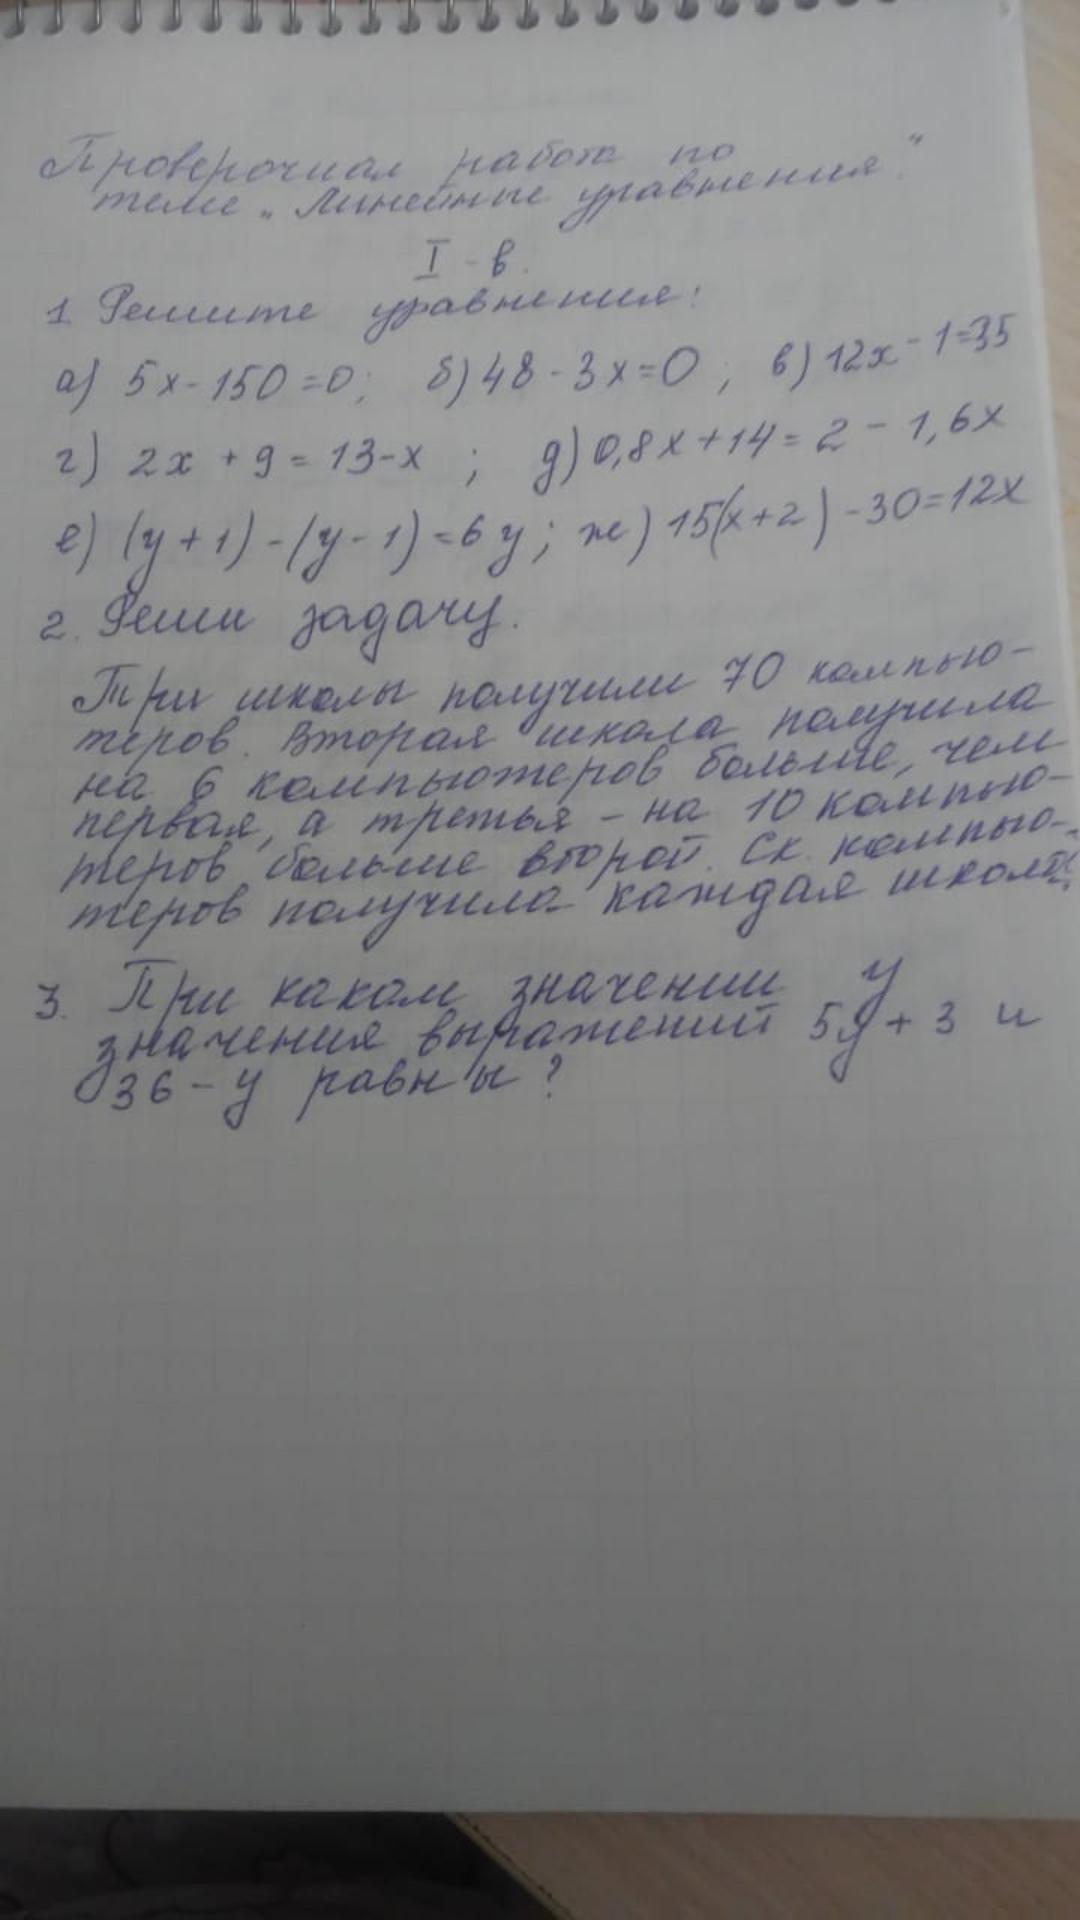 Проверочная работа по
теме „Линейные уравнения".
I - в.
1. Решите уравнения:
а) 5x - 150 = 0; б) 48 - 3x = 0; в) 12x - 1 = 35
г) 2x + 9 = 13 - x; д) 0,8x + 14 = 2 - 1,6x
е) (y + 1) - (y - 1) = 6y; ж) 15(x + 2) - 30 = 12x
2. Реши задачу.
Три школы получили 70 компью-
теров. Вторая школа получила
на 6 компьютеров больше, чем
первая, а третья - на 10 компью-
теров больше второй. Ск. компью-
теров получила каждая школа?
3. При каком значении y
значения выражений 5y + 3 и
36 - y равны?